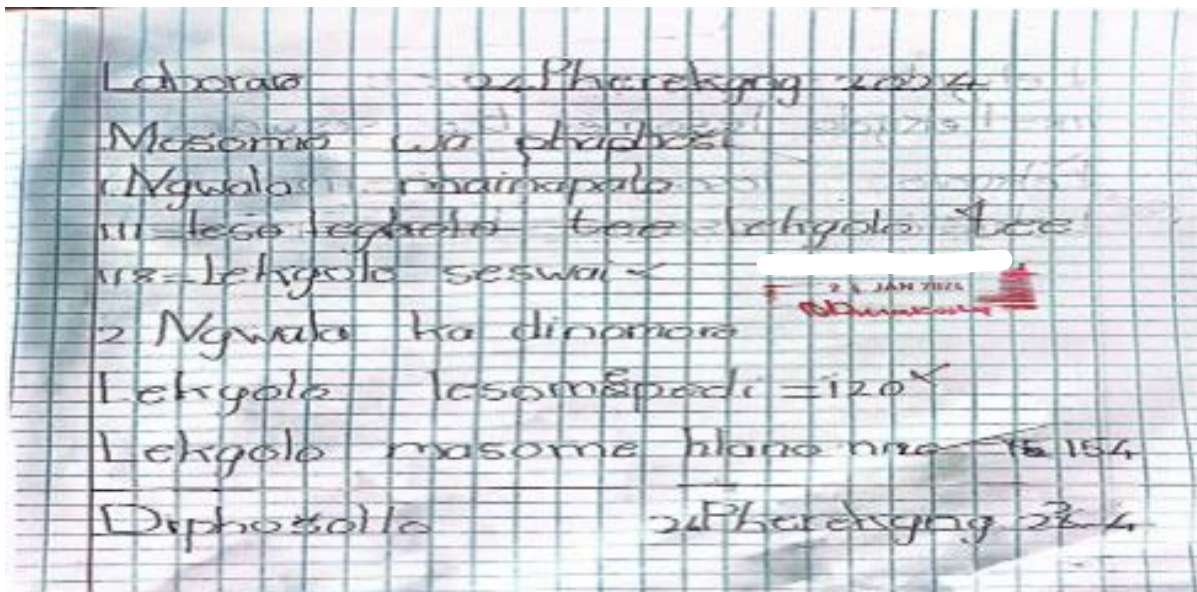 Laboraro 24 Pherekgng 2024
Mosomo wa phaphosi
1 Ngwalo mainapalo
111 = lekgolo tee
118 = Lekgolo seswai ✓
24 JAN 2024
2 Ngwala ka dinomoro
Lekgolo lesomepedi = 120 ✓
Lekgolo masome hlano nne 154
Diphosollo 24 Pherekgng